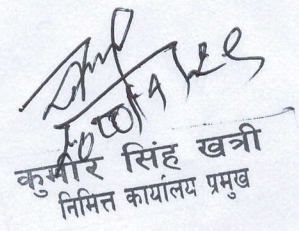 कुमार सिंह खत्री
निमित्त कार्यालय प्रमुख